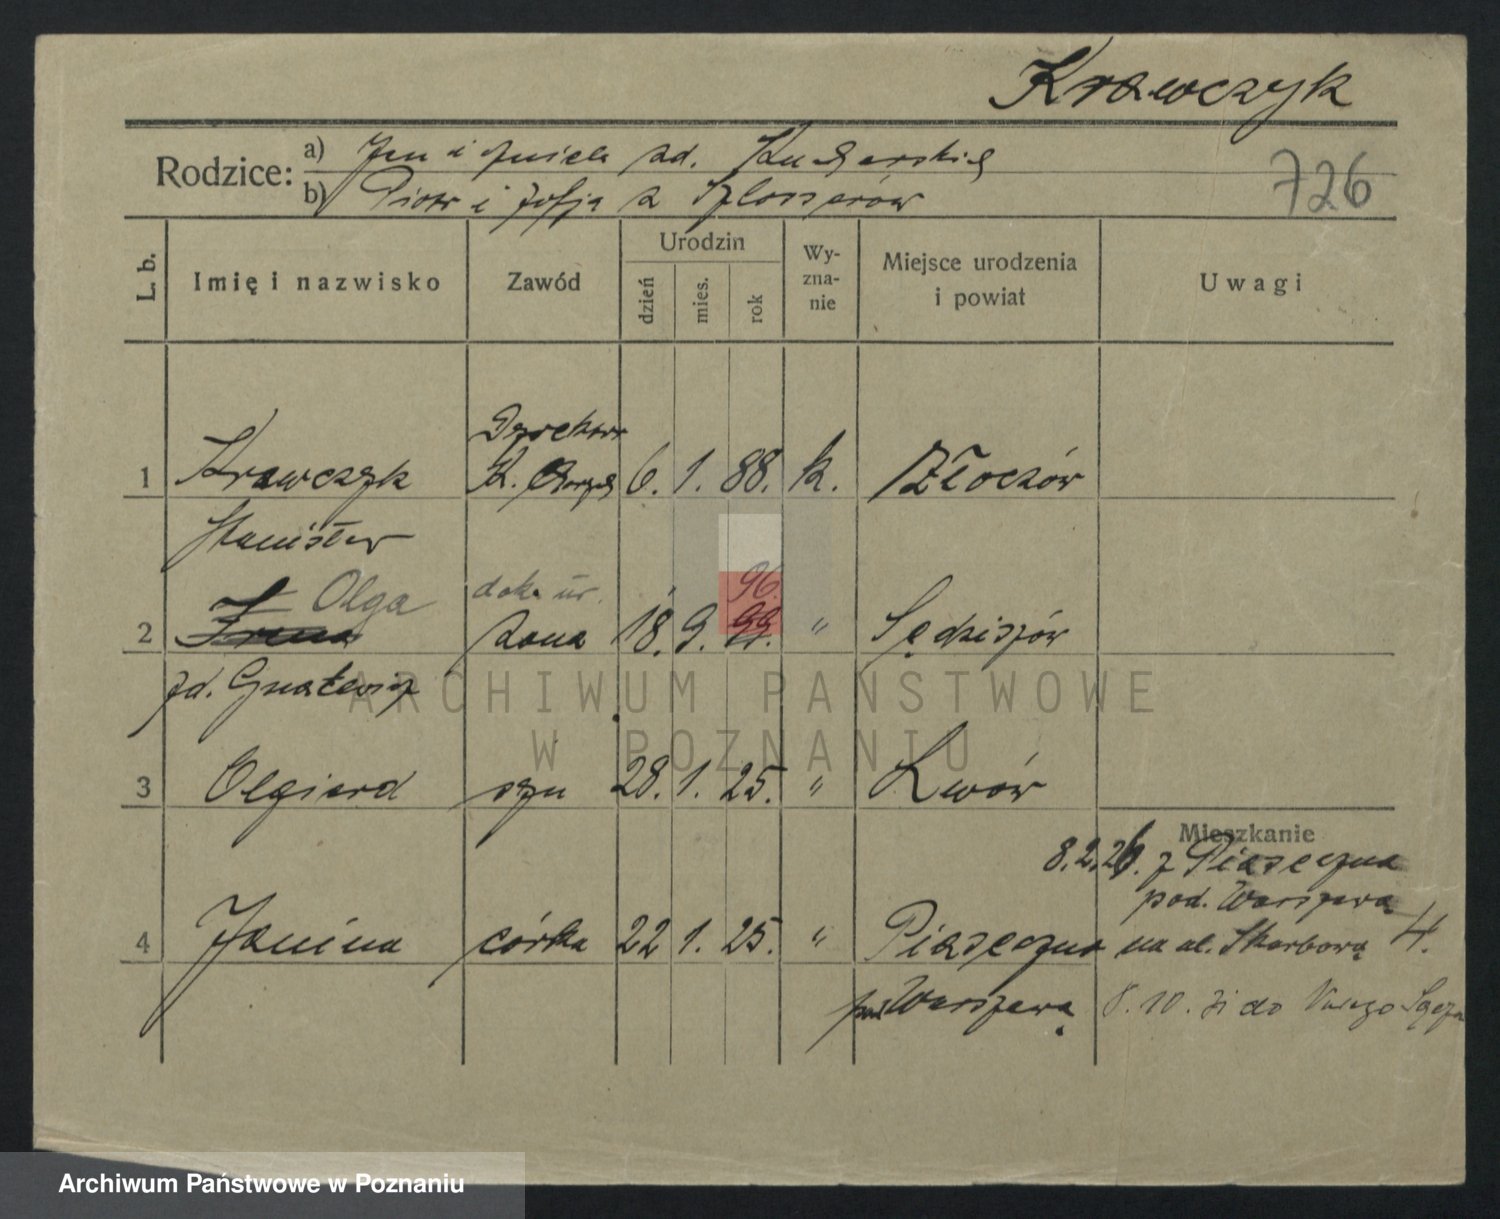 Krawczyk
Rodzice:
a) Jan i Aniela zd. Kucharskich
b) Piotr i Zofja z Szlosserów
726
L. b.
Imię i nazwisko
Zawód
Urodzin
dzień
mies.
rok
Wy-
zna-
nie
Miejsce urodzenia
i powiat
Uwagi
1 Krawczyk K. 6. 1. 88. k. Złoczów
Stanisław
Olga dok. ur. 96.
2 Irena żona 18. 9. 99. " Sędziszów
zd.
3 Olgierd syn 28. 1. 25. " Lwów
Mieszkanie
8.2.26. z Piaseczna
pod. Warszawą
4 Janina córka 22 1. 25. " Piaseczno na ul. Skarbową 4.
pod Warszawą 8. 10. do Sącza
ARCHIWUM PAŃSTWOWE
W POZNANIU
Archiwum Państwowe w Poznaniu